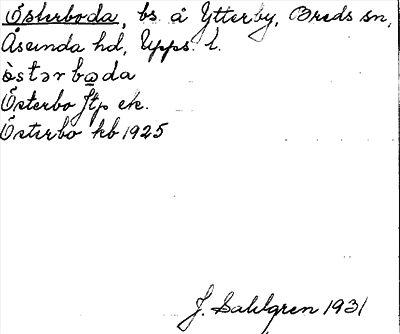 Österboda, bs å Ytterby, Breds sn,
Åsunda hd, Upps. l.
òstər bo̲da
Österbo ftp ek.
Österbo kb 1925
J. Sahlgren 1931